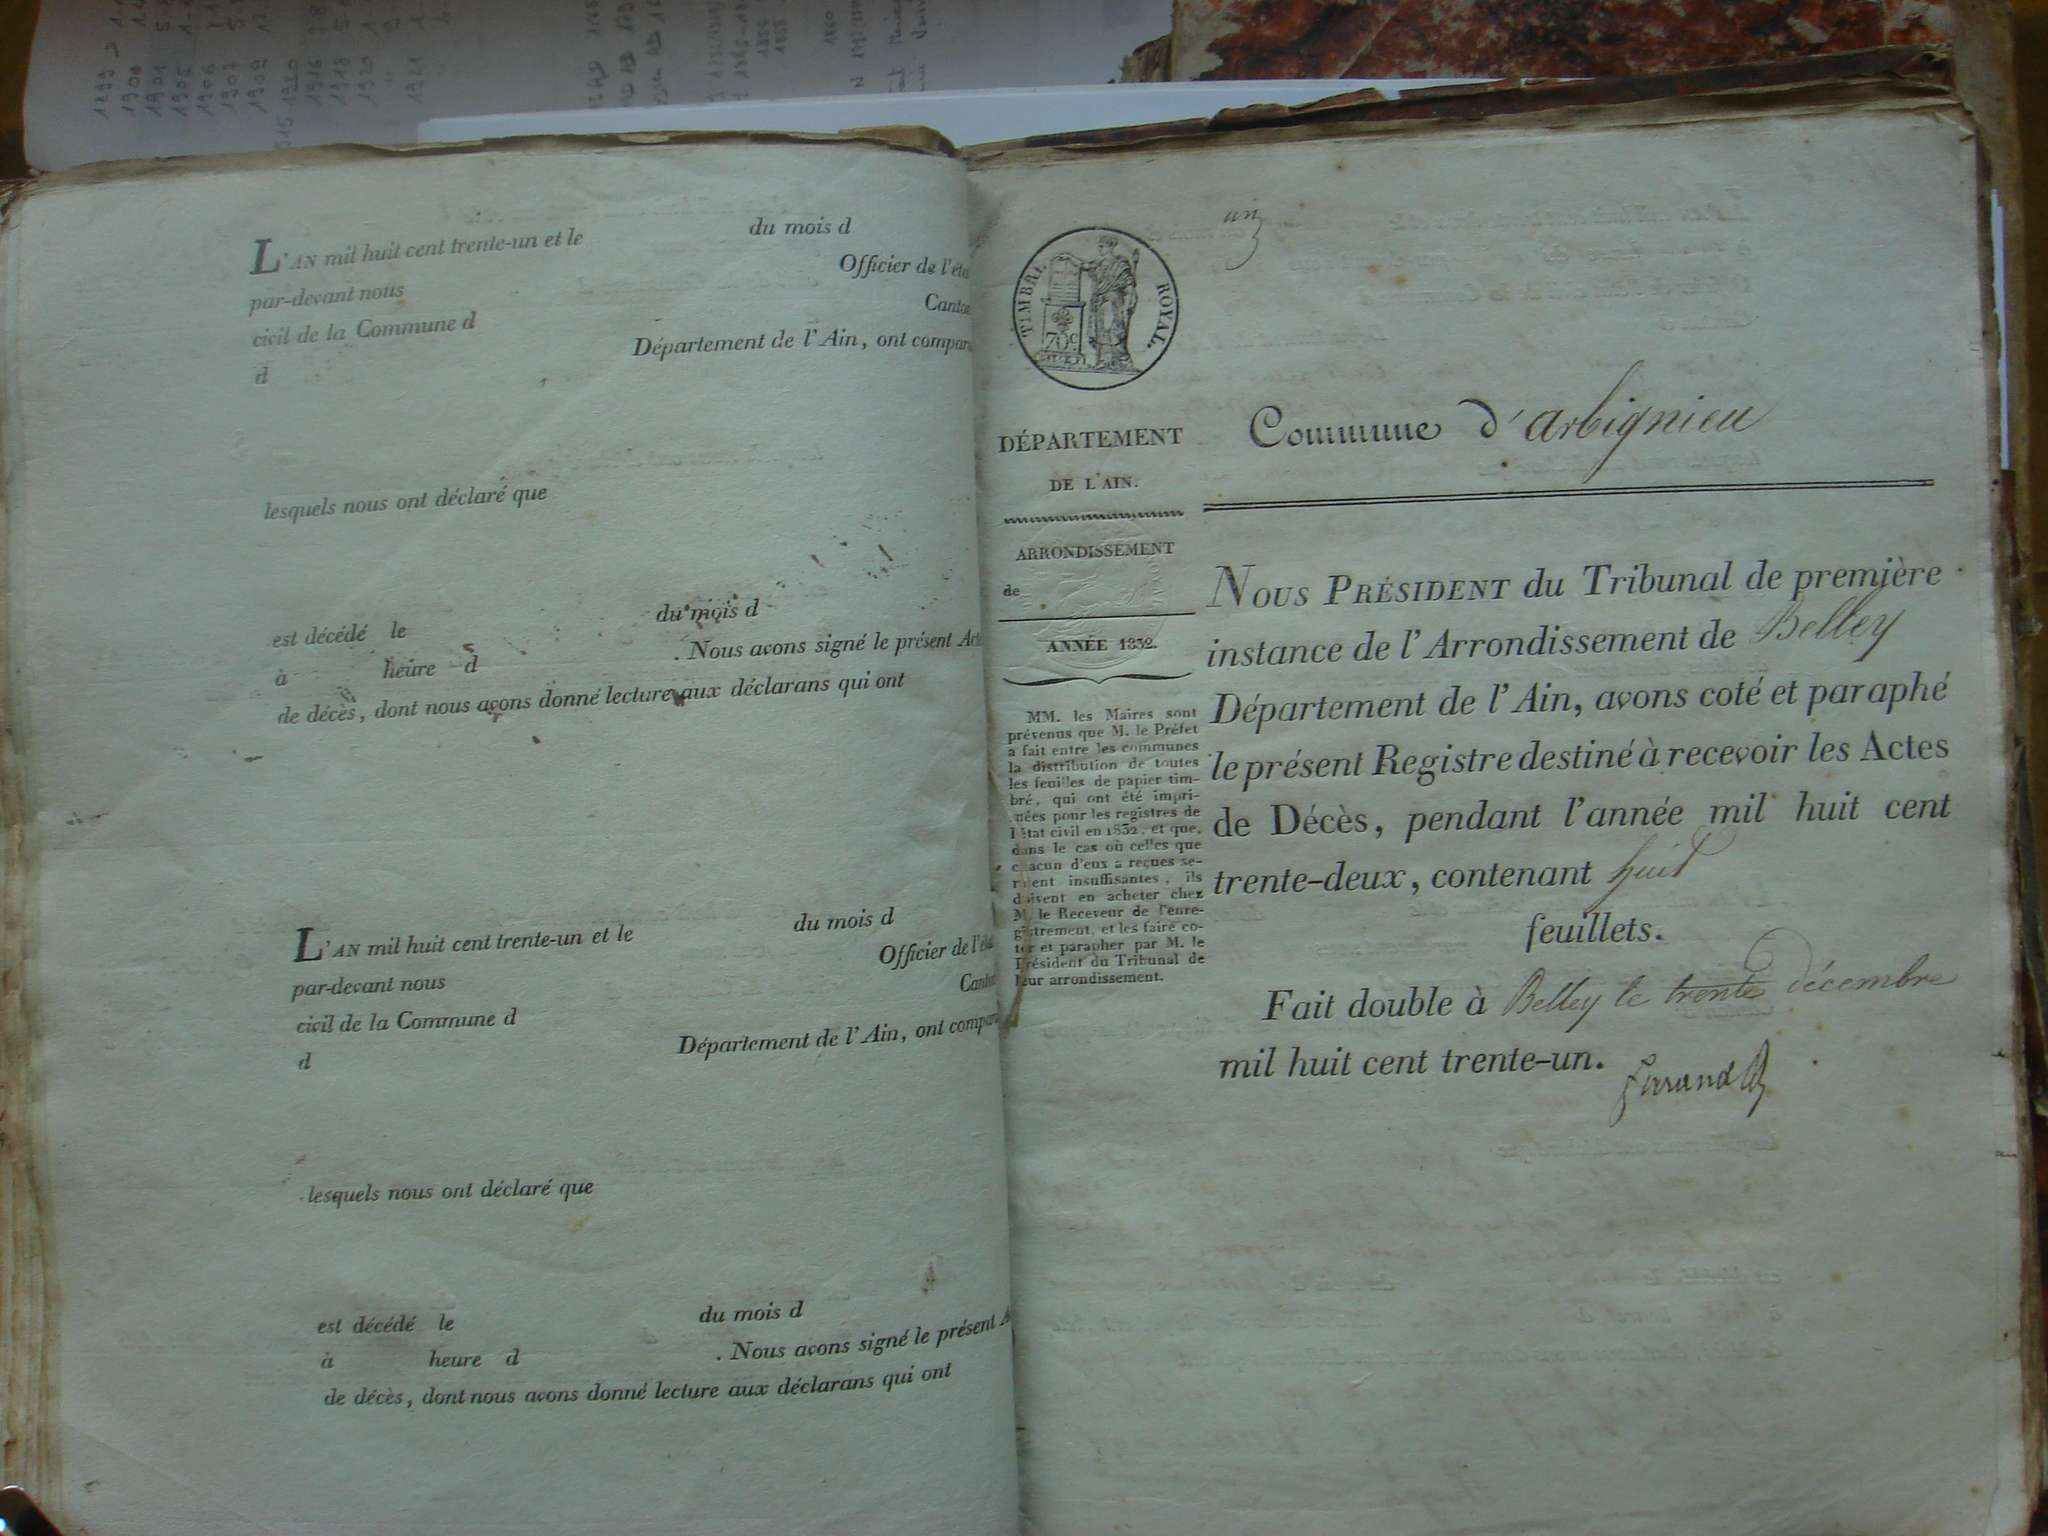 L'AN mil huit cent trente-un et le du mois d
par-devant nous Officier de l'éta
civil de la Commune d Canton
d Département de l'Ain, ont compar
lesquels nous ont déclaré que
est décédé le du mois d
à heure d . Nous avons signé le présent Acte
de décès, dont nous avons donné lecture aux déclarans qui ont
L'AN mil huit cent trente-un et le du mois d
par-devant nous Officier de l'éta
civil de la Commune d Canton
d Département de l'Ain, ont compar
lesquels nous ont déclaré que
est décédé le du mois d
à heure d . Nous avons signé le présent A
de décès, dont nous avons donné lecture aux déclarans qui ont
un
TIMBRE ROYAL.
70c
DÉPARTEMENT
DE L'AIN.
ARRONDISSEMENT
de
ANNÉE 1832.
MM. les Maires sont
prévenus que M. le Préfet
a fait entre les communes
la distribution de toutes
les feuilles de papier tim-
bré, qui ont été impri-
mées pour les registres de
l'état civil en 1832, et que,
dans le cas où celles que
chacun d'eux a reçues se-
roient insuffisantes, ils
doivent en acheter chez
M. le Receveur de l'enre-
gistrement, et les faire co-
ter et parapher par M. le
Président du Tribunal de
leur arrondissement.
Commune d'arbignieu
NOUS PRÉSIDENT du Tribunal de première
instance de l'Arrondissement de Belley
Département de l'Ain, avons coté et paraphé
le présent Registre destiné à recevoir les Actes
de Décès, pendant l'année mil huit cent
trente-deux, contenant huit
feuillets.
Fait double à Belley le trente décembre
mil huit cent trente-un.
1899
1900
1901
1905
1906
1907
1909
1920
1916
1918
1920
1921